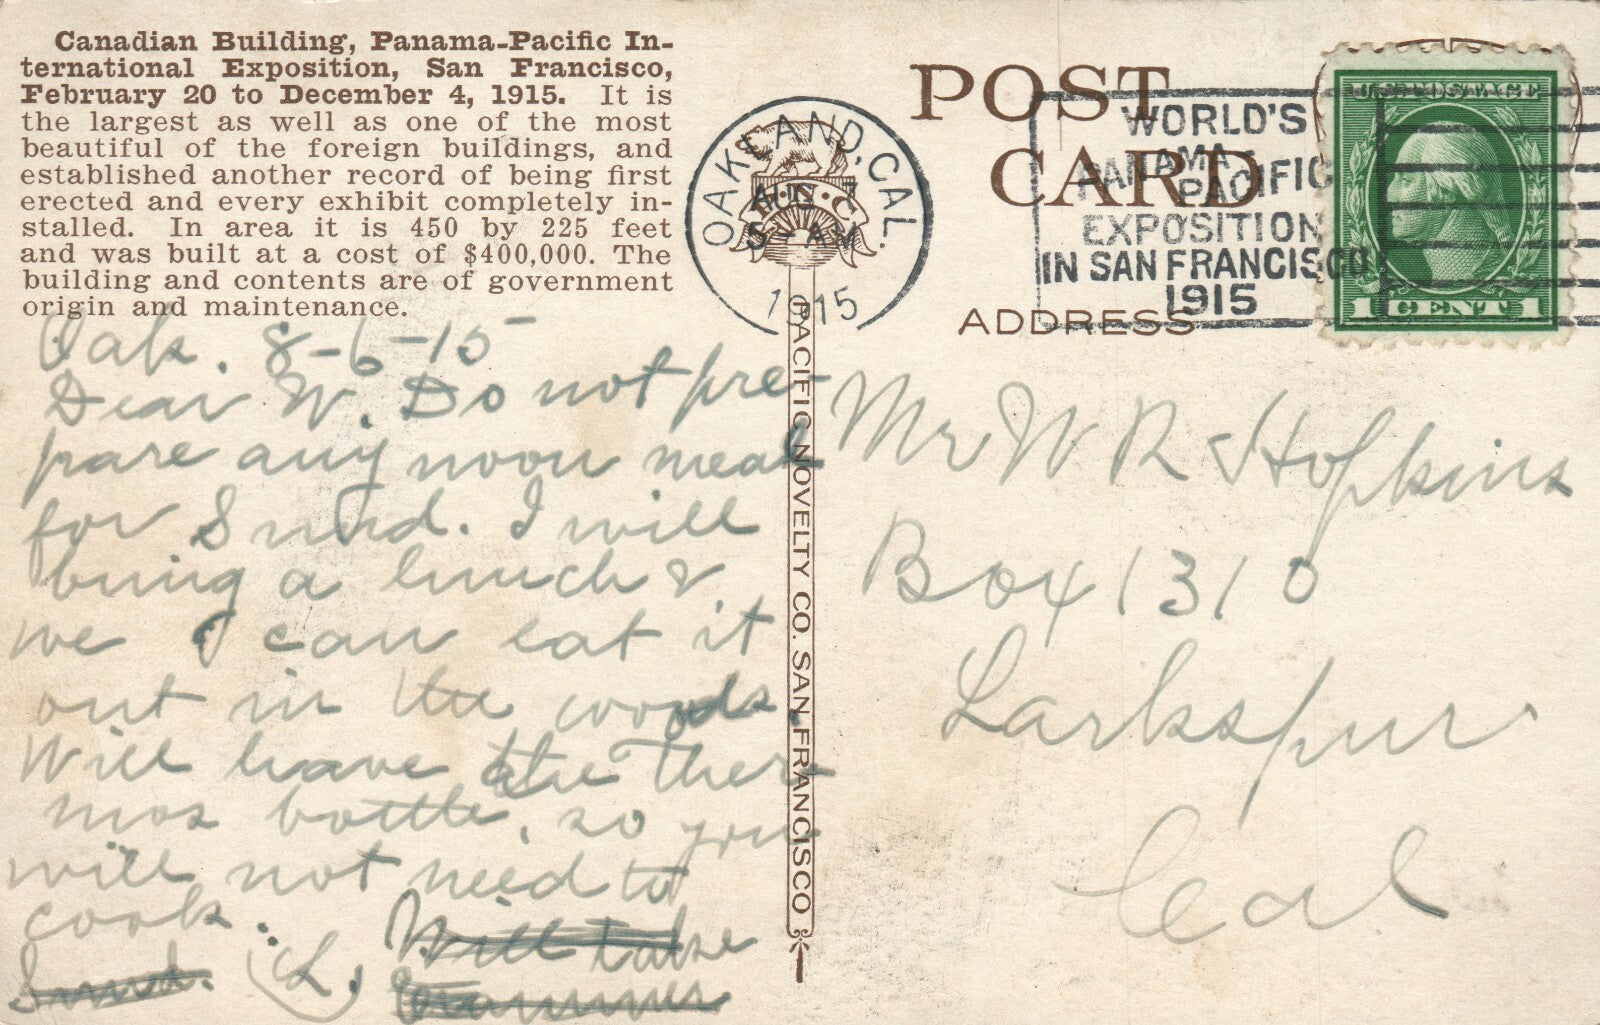 Canadian Building, Panama-Pacific In-
ternational Exposition, San Francisco,
February 20 to December 4, 1915. It is
the largest as well as one of the most
beautiful of the foreign buildings, and
established another record of being first
erected and every exhibit completely in-
stalled. In area it is 450 by 225 feet
and was built at a cost of $400,000. The
building and contents are of government
origin and maintenance.
Oak. 8-6-15
Dear W. Do not pre-
pare any noon meal
for Sund. I will
bring a lunch &
we can eat it
out in the woods.
Will have the Ther-
mos bottle, so you
will not need to
cook.
Sund. (L.) Will take
PACIFIC NOVELTY CO. SAN FRANCISCO
OAKLAND, CAL.
AUG 7
5 - AM
1915
P. N. C.
POST
CARD
ADDRESS
WORLD'S
PANAMA-
PACIFIC
EXPOSITION
IN SAN FRANCISCO
1915
U.S. POSTAGE
1 CENT 1
Mr W R Hopkins
Box 1310
Larkspur
Cal